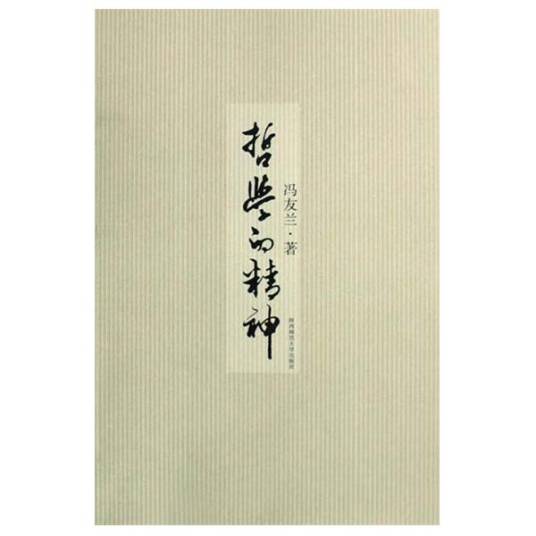 哲学的精神
冯友兰·著
陕西师范大学出版社